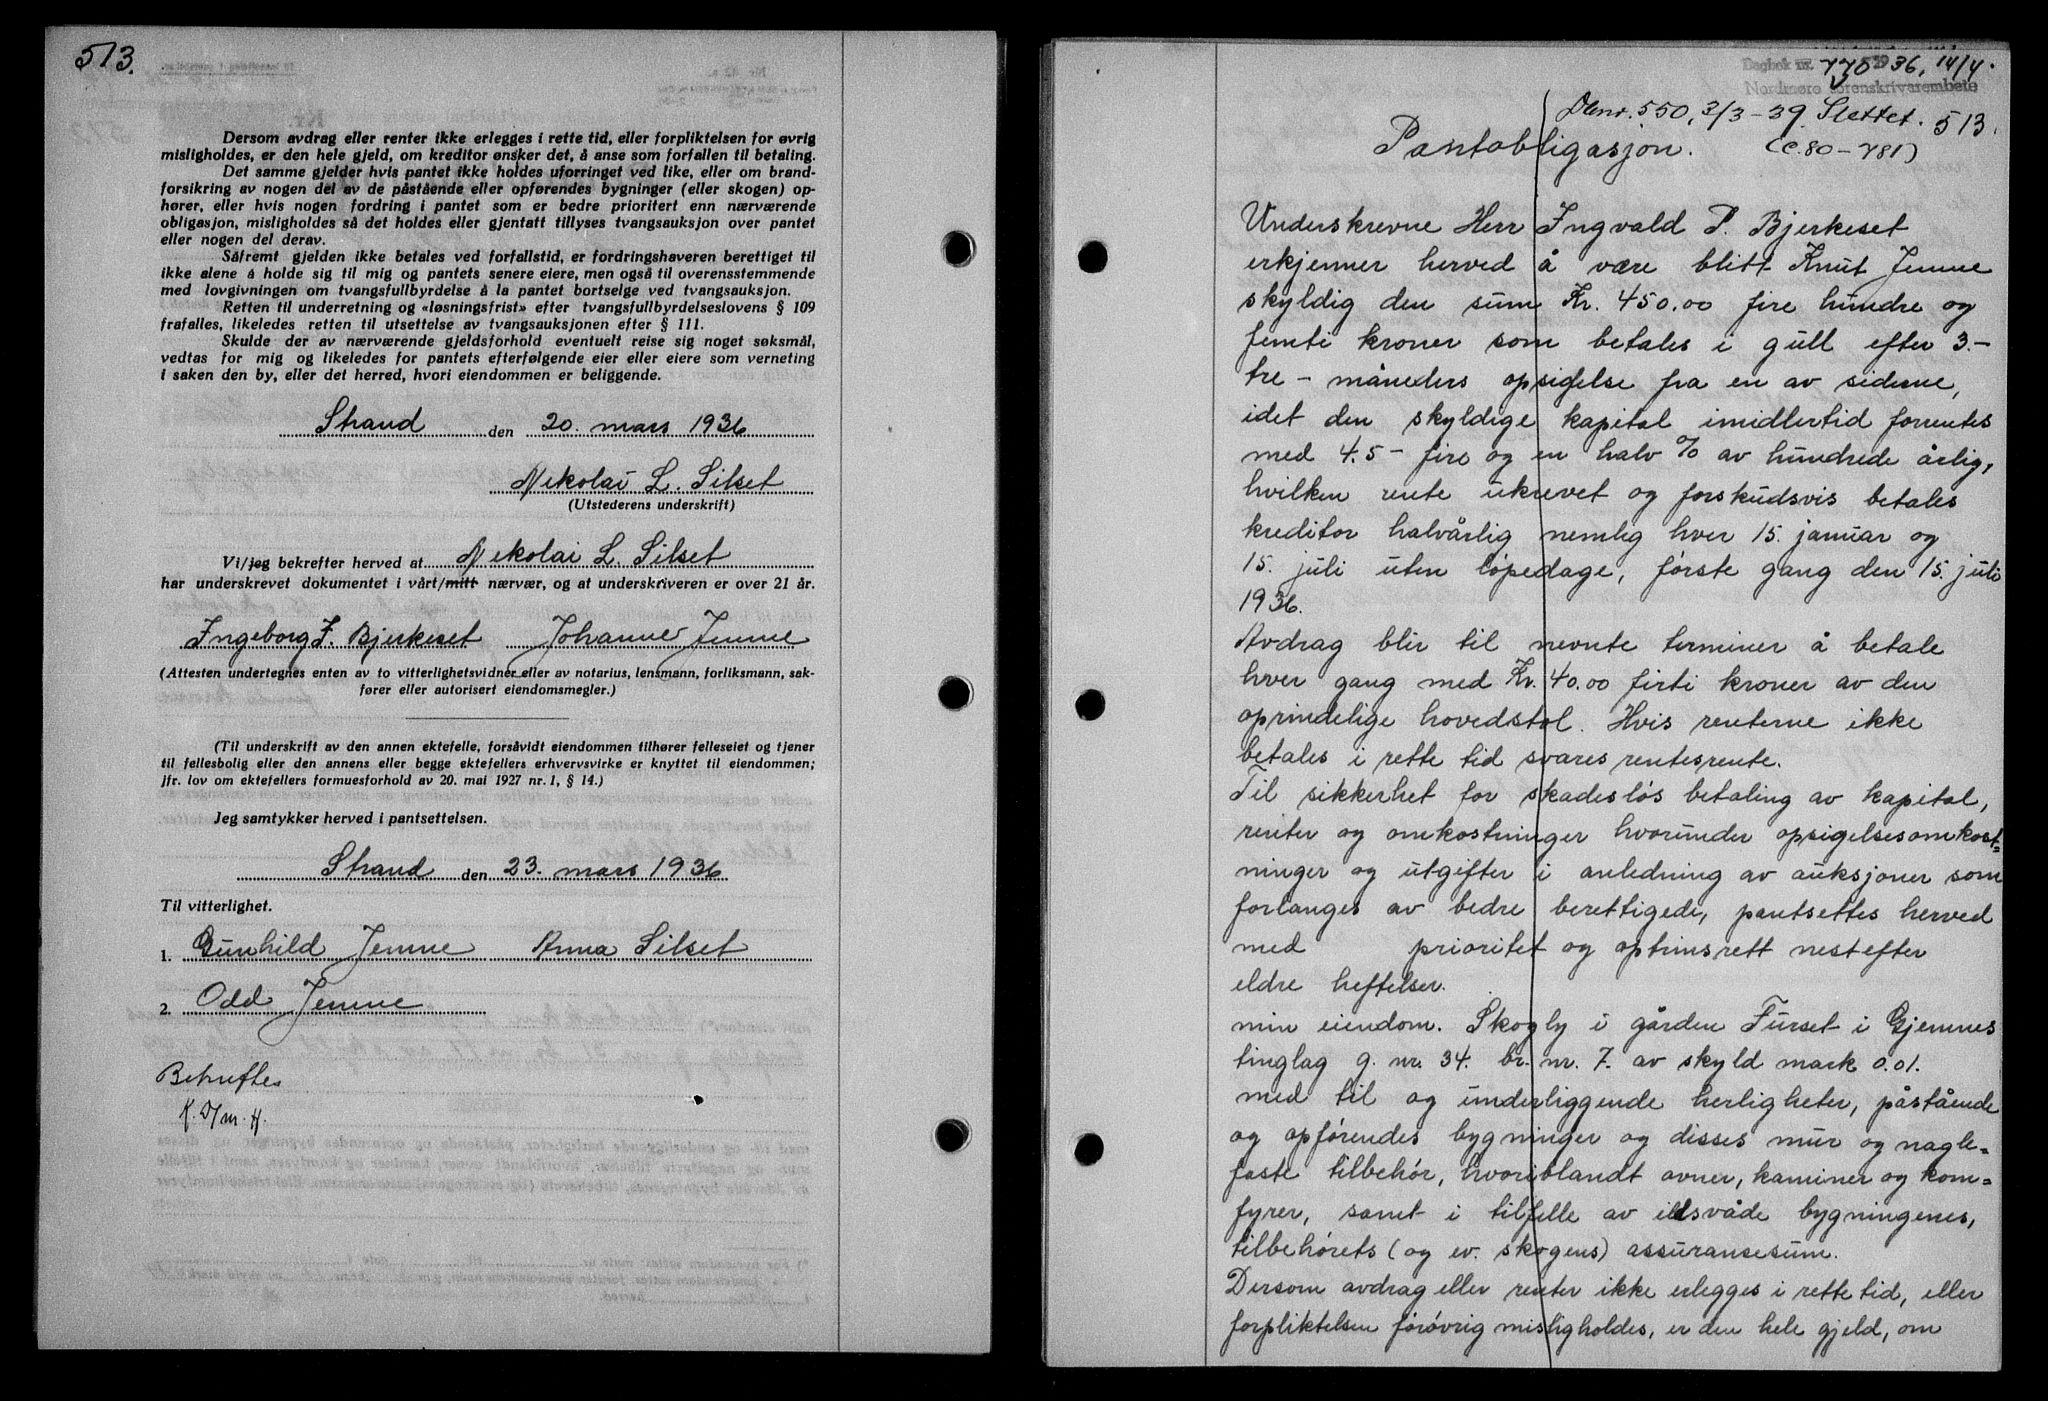 513.
Dersom avdrag eller renter ikke erlegges i rette tid, eller forpliktelsen for øvrig
misligholdes, er den hele gjeld, om kreditor ønsker det, å anse som forfallen til betaling.
Det samme gjelder hvis pantet ikke holdes uforringet ved like, eller om brand-
forsikring av nogen del av de påstående eller opførendes bygninger (eller skogen) op-
hører, eller hvis nogen fordring i pantet som er bedre prioritert enn nærværende
obligasjon, misligholdes så det holdes eller gjentatt tillyses tvangsauksjon over pantet
eller nogen del derav.
Såfremt gjelden ikke betales ved forfallstid, er fordringshaveren berettiget til
ikke alene å holde sig til mig og pantets senere eiere, men også til overensstemmende
med lovgivningen om tvangsfullbyrdelse å la pantet bortselge ved tvangsauksjon.
Retten til underretning og «løsningsfrist» efter tvangsfullbyrdelseslovens § 109
frafalles, likeledes retten til utsettelse av tvangsauksjonen efter § 111.
Skulde der av nærværende gjeldsforhold eventuelt reise sig noget søksmål,
vedtas for mig og likeledes for pantets efterfølgende eier eller eiere som verneting
i saken den by, eller det herred, hvori eiendommen er beliggende.
Strand den 20. mars 1936
Nikolai L. Silset
(Utstederens underskrift)
Vi/jeg bekrefter herved at Nikolai L. Silset
har underskrevet dokumentet i vårt/mitt nærvær, og at underskriveren er over 21 år.
Ingeborg I. Bjerkeset Johanne Jemne
(Attesten undertegnes enten av to vitterlighetsvidner eller av notarius, lensmann, forliksmann, sak-
fører eller autorisert eiendomsmegler.)
(Til underskrift av den annen ektefelle, forsåvidt eiendommen tilhører felleseiet og tjener
til fellesbolig eller den annens eller begge ektefellers erhvervsvirke er knyttet til eiendommen;
jfr. lov om ektefellers formuesforhold av 20. mai 1927 nr. 1, § 14.)
Jeg samtykker herved i pantsettelsen.
Strand den 23. mars 1936
Til vitterlighet.
1. Gunhild Jemne Anna Silset
2. Odd Jemne
Bekreftes
Dagbok nr. 770 1936, 14/4.
Nordmøre sorenskrivarembete
Dbnr. 550, 3/3-39. Slettet. 513.
Pantobligasjon. (C.80-781)
Underskrevne Herr Ingvald P. Bjerkeset
erkjenner herved å være blitt Knut Jemne
skyldig den sum Kr. 450.00 fire hundre og
femti kroner som betales i gull efter 3.-
tre - måneders opsigelse fra en av siderne,
idet den skyldige kapital imidlertid forrentes
med 4.5 - fire og en halv % av hundrede årlig,
hvilken rente ukrevet og forskudsvis betales
kreditor halvårlig nemlig hver 15. januar og
15. juli uten løpedage, første gang den 15. juli
1936.
Avdrag blir til nevnte terminer å betale
hver gang med Kr. 40.00 firti kroner av den
oprindelige hovedstol. Hvis renterne ikke
betales i rette tid svares rentesrente.
Til sikkerhet for skadesløs betaling av kapital,
renter og omkostninger hvorunder opsigelsesomkost=
ninger og utgifter i anledning av auksjoner som
forlanges av bedre berettigede, pantsettes herved
med prioritet og optrinsrett nest efter
eldre heftelser.
min eiendom. Skogly i gården Furset i Gjemnes
tinglag g. nr. 34. br. nr. 7. av skyld mark 0.01.
med til og underliggende herligheter, påstående
og opførendes bygninger og disses mur og nagle=
faste tilbehør, hvoriblandt ovner, kaminer og kom=
fyrer, samt i tilfelle av ildsvåde bygningenes,
tilbehørets (og ev. skogens) assuransesum.
Dersom avdrag eller renter ikke erlegges i rette tid, eller
forpliktelsen forøvrig misligholdes, er den hele gjeld, om